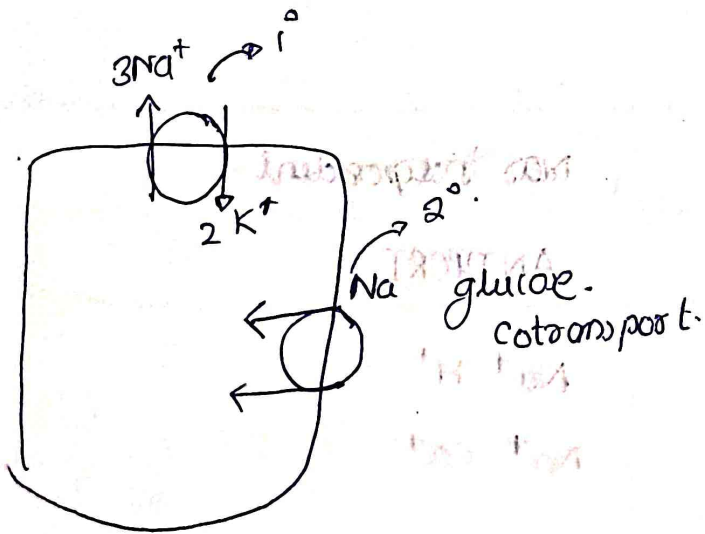 1°
3Na⁺
2 K⁺
2°.
Na glucoe.
cotransport.